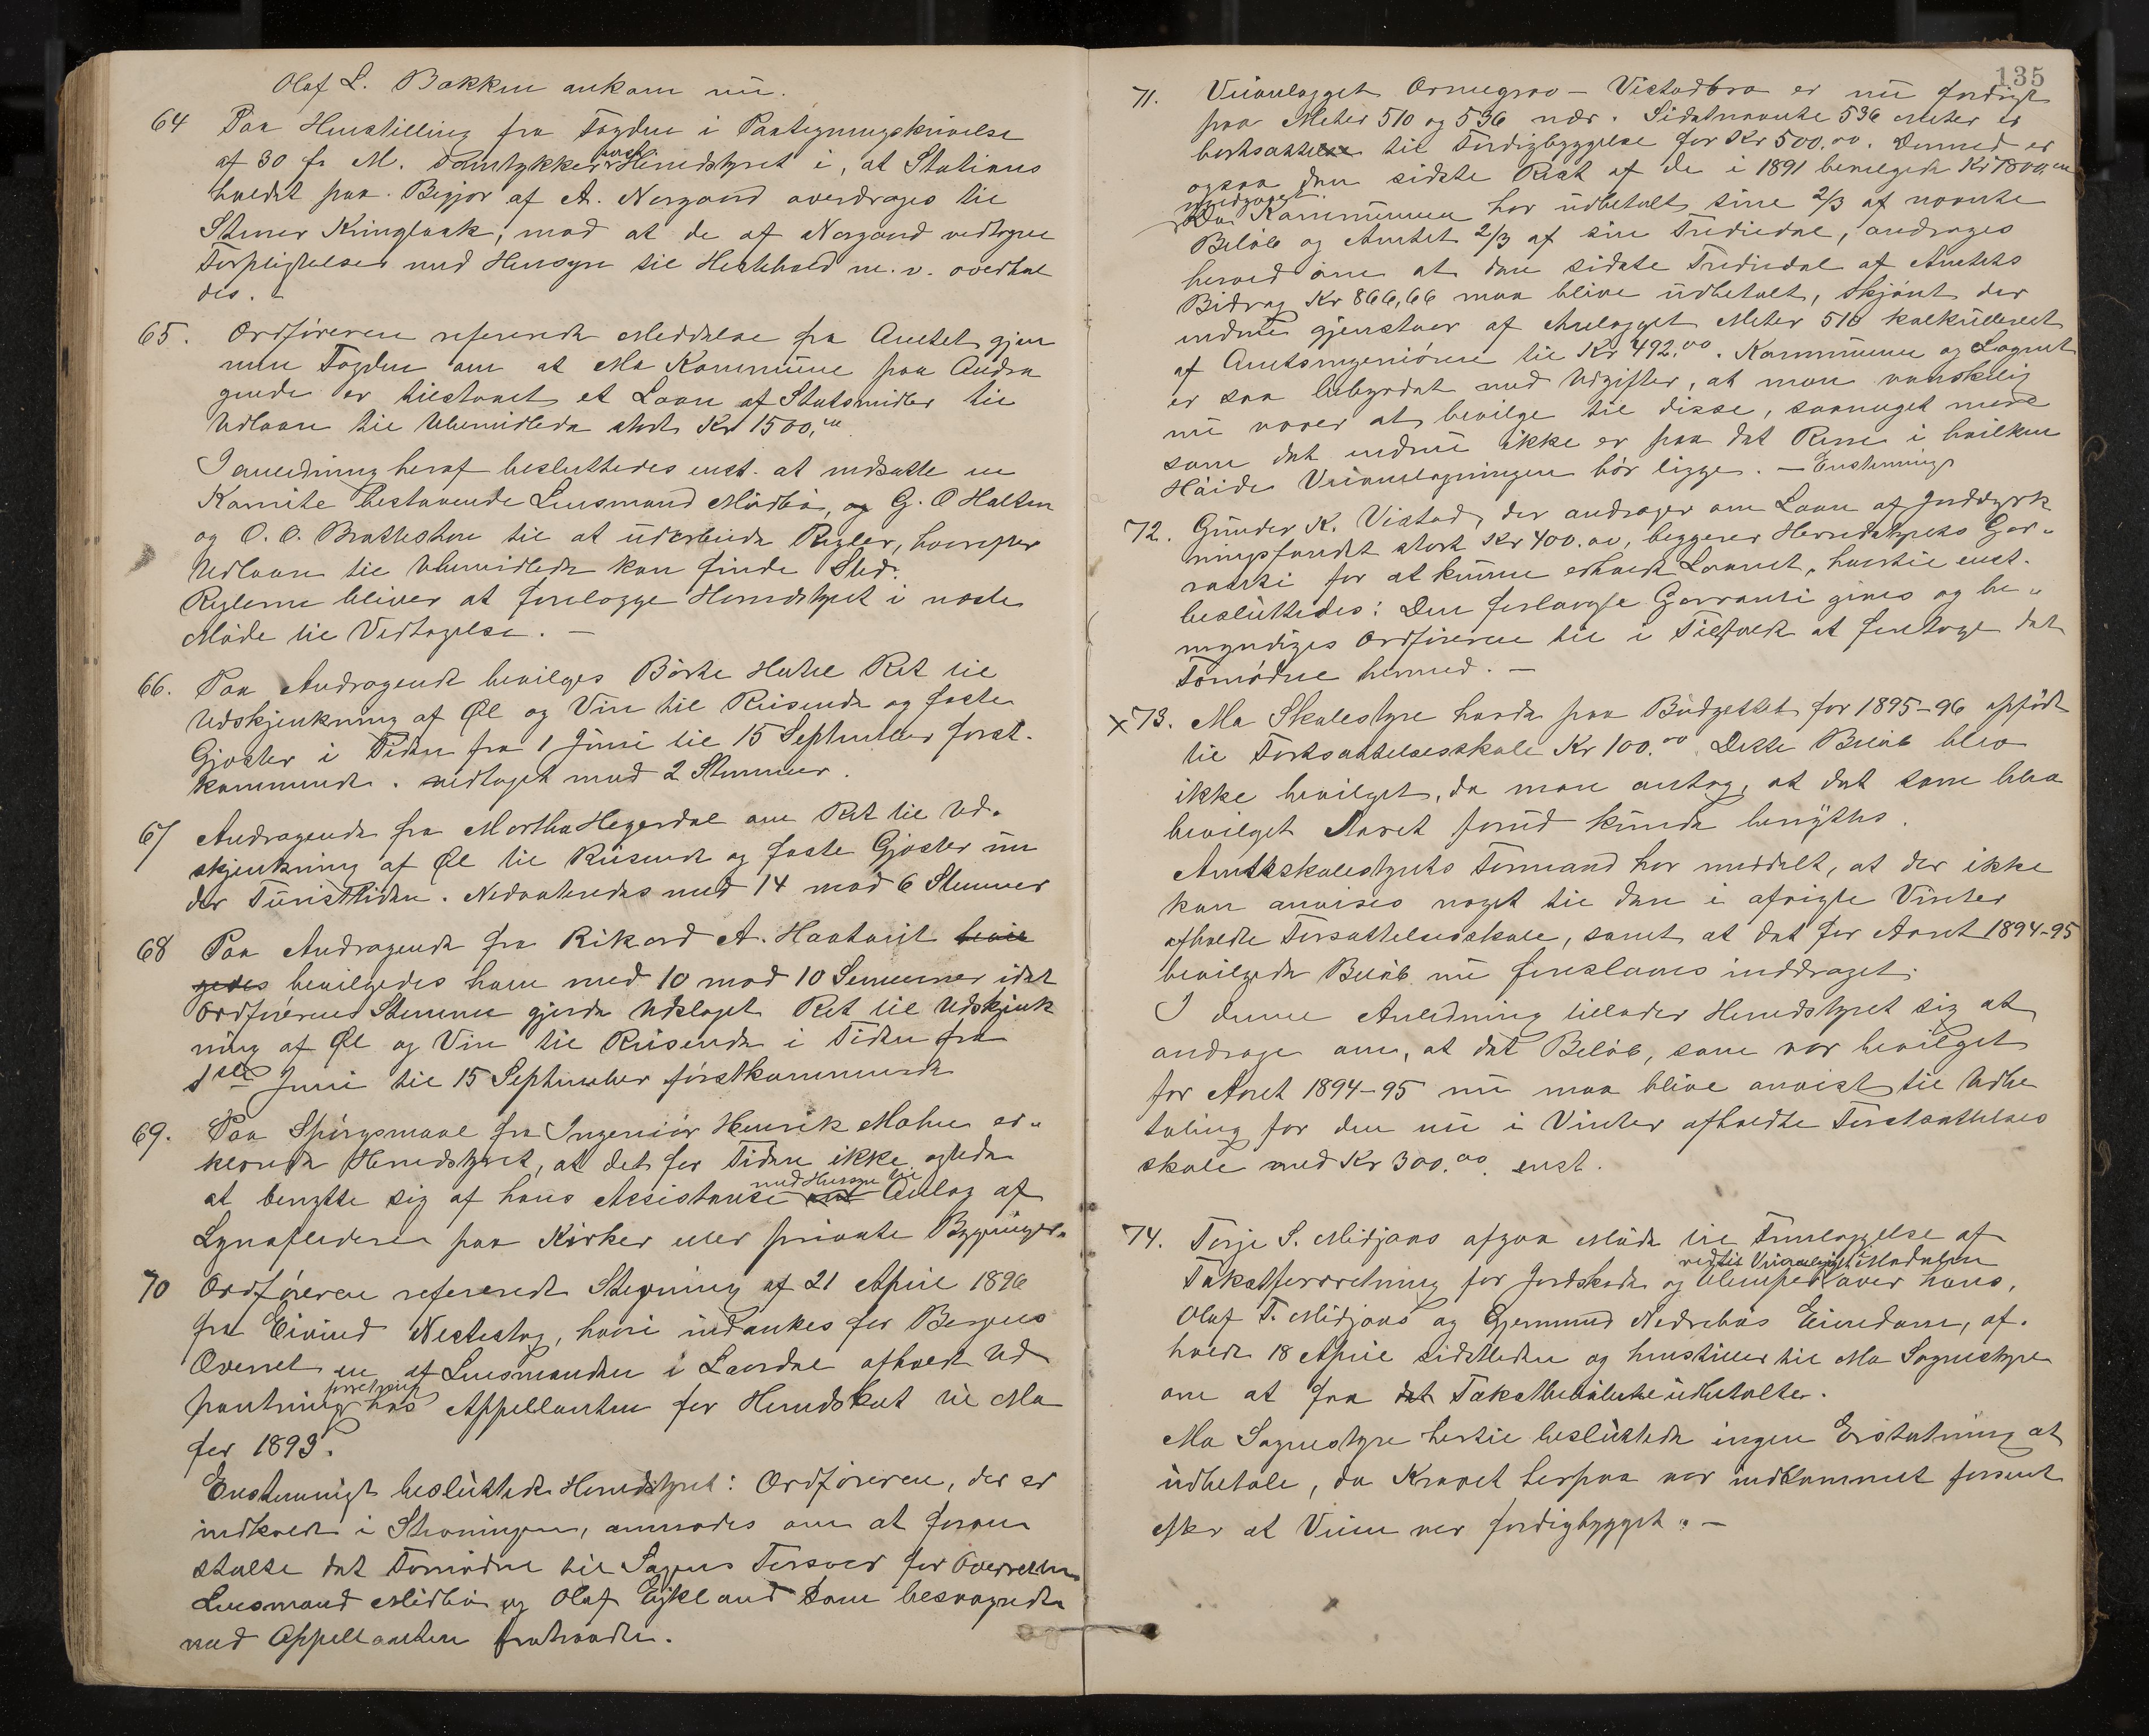 Olaf L. Bakken ankom nu.
64 Paa Henstilling fra Fogden i Paategningsskrivelse
af 30 f. M. samtykker enst. Herredstyret i, at Stations
holdet paa Begjær af A. Norgaard overdrages til
Stener Kringlaak, mod at de af Norgaard vedtagne
Forpligtelser med Hensyn til Hestehold m. v. overhol
des. –
65. Ordføreren refererede Meddelse fra Amtet gjen
nem Fogden om at Mo Kommune paa Andra
gende er tilstaaet et Laan af Statsmidler til
Udlaan til Ubemidlede stort Kr 1500,00
I anledning heraf besluttedes enst. at nedsætte en
Komite bestaaende Lensmand Midbø, og G. O Halten
og O. O. Brattestøen til at udarbeide Regler, hvorefter
Udlaan til Ubemidlede kan finde Sted.
Reglerne bliver at forelægge Herredstyret i næste
Møde til Vedtagelse. –
66. Paa Andragende bevilges Børte Hotel Ret til
Udskjenkning af Øl og Vin til Reisende og faste
Gjæster i Tiden fra 1 Juni til 15 September først-
kommende. vedtaget mod 2 Stemmer.
67 Andragende fra Marthe Hegerdal om Ret til Ud-
skjenkning af Øl til Reisende og faste Gjæster un
der Turisttiden. Nedvoteredes med 14 mod 6 Stemmer
68 Paa Andragende fra Rikard A. Haatveit bevil
gedes bevilgedes ham med 10 mod 10 Stemmer idet
Ordførerens Stemme gjorde Udslaget Ret til Udskjenk
ning af Øl og Vin til Reisende i Tiden fra
1ste Juni til 15 September førstkommende
69. Paa Spørgsmaal fra Ingeniør Henrik Mohn er-
klærede Herredstyret, at det for Tiden ikke agtede
at benytte sig af hans Assistanse med Hensyn til Anlæg af
Lynafledere paa Kirker eller private Bygninger.
70 Ordføreren refererede Stevning af 21 April 1896
fra Eivind Nestestog, hvori indankes for Bergens
Overret en af Lensmanden i Laurdal afholdt Ud
pantningsforretning hos Appellanten for Herredskat til Mo
for 1893.
Enstemmigt besluttede Herredstyret: Ordføreren, der er
indkaldt i Stevningen, anmodes om at foran
stalte det Fornødne til Sagens Forsvar for Overretten
Lensmand Midbø og Olaf Eikland som besvogrede
med Appellanten fratraadte.
135
71. Veianlægget Ormegrav – Vistadbro er nu færdigt
paa Meter 510 og 536 nær. Sidstnævnte 536 Meter er
bortsat til Færdigbyggelse for Kr 500.00. Dermed er
ogsaa den sidste Rest af de i 1891 bevilgede Kr 7800,00
medgaaet
Da Kommunen har udbetalt sine 2/3 af nævnte
Beløb og Amtet 2/3 af sin Trediedel, andrages
herved om at den sidste Trediedel af Amtets
Bidrag Kr 866,66 maa blive udbetalt, skjønt der
endnu gjenstaar af Anlægget Meter 510 kalkuleret
af Amtsingeniøren til Kr 492,00. Kommunen og Sognet
er saa bebyrdet med Udgifter, at man vanskelig
nu vover at bevilge til disse, saameget mere
som det endnu ikke er paa det Rene i hvilken
Høide Veianlægningen bør ligge. – Enstemmigt
72. Gunder K. Vistad, der andrager om Laan af Jorddyrk
ningsfondet stort Kr 400.00, begjærer Herredstyrets Gar-
ranti for at kunne erholde Laanet, hvortil enst.
besluttedes: Den forlangte Garranti gives og be-
myndiges Ordføreren til i Tilfælde at foretage det
Fornødne hermed. –
x 73. Mo Skolestyre havde paa Budgettet for 1895-96 opført
til Fortsættelsesskole Kr 100.00 Dette Beløb blev
ikke bevilget, da man antog, at det som blev
bevilget Aaret forud kunde benyttes.
Amtsskolestyrets Formand har meddelt, at der ikke
kan anvises noget til den i afvigte Vinter
afholdte Forsættelsesskole, samt at det for Aaret 1894-95
bevilgede Beløb nu foreslaaes inddraget.
I denne Anledning tillader Herredstyret sig at
andrage om, at det Beløb, som var bevilget
for Aaret 1894-95 nu maa blive anvist til Udbe
taling for den nu i Vinter afholdte Fortsættelses
skole med Kr 300.00. enst.
74. Terje S. Midjaas afgav Møde til Fremlæggelse af
Takstforretning for Jordskade og Ulemper ved til Veianlægget i Modalen over hans,
Olaf T. Midjaas og Gjermund Nedrebøs Eiendom, af-
holdt 18 April sidstleden og henstiller til Mo Sognestyre
om at faa det Takstbeløbene udbetalte.
Mo Sognestyre hertil besluttede ingen Erstatning at
udbetale, da Kravet herpaa var indkommet forsent
efter at Veien var færdigbygget. –